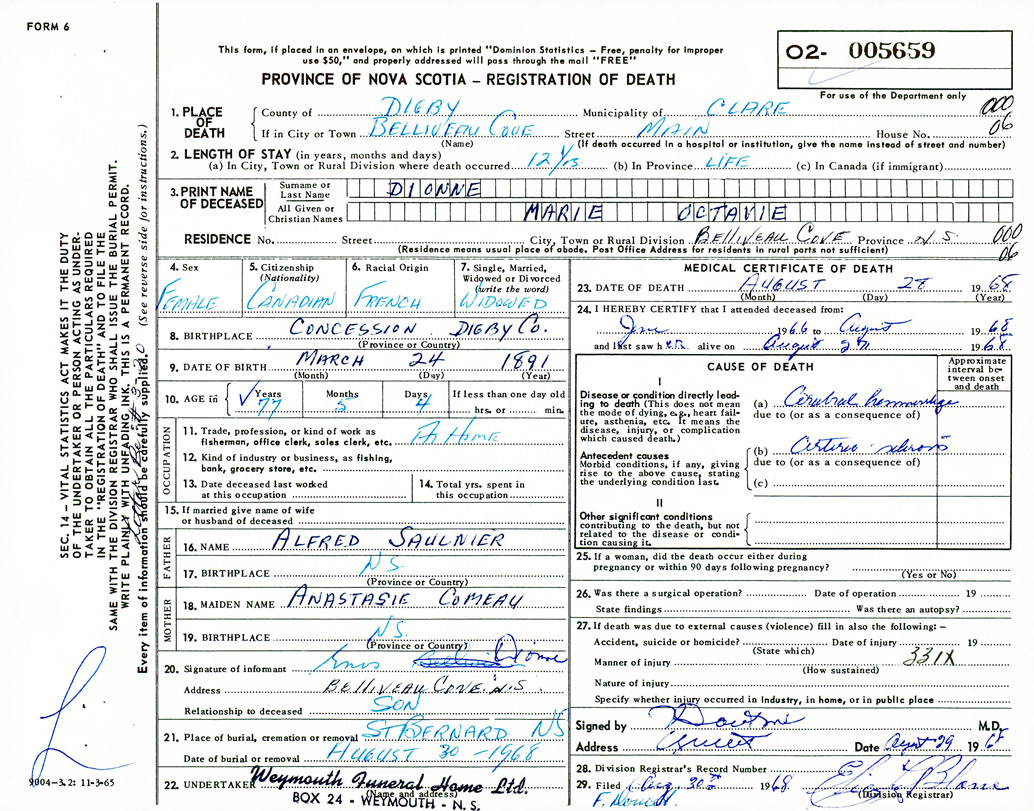 FORM 6
This form, if placed in an envelope, on which is printed "Dominion Statistics – Free, penalty for improper
use $50," and properly addressed will pass through the mail "FREE"
PROVINCE OF NOVA SCOTIA – REGISTRATION OF DEATH
O2- 005659
For use of the Department only
1. PLACE OF DEATH County of DIGBY Municipality of CLARE 000
If in City or Town BELLIVEAU COVE Street MAIN House No. 06
(Name) (If death occurred in a hospital or institution, give the name instead of street and number)
2. LENGTH OF STAY (in years, months and days)
(a) In City, Town or Rural Division where death occurred 12 (b) In Province LIFE (c) In Canada (if immigrant)
3. PRINT NAME OF DECEASED Surname or Last Name DIONNE
All Given or Christian Names MARIE OCTAVIE
RESIDENCE No. Street City, Town or Rural Division BELLIVEAU COVE Province N S. 000
(Residence means usual place of abode. Post Office Address for residents in rural parts not sufficient) 06
4. Sex FEMALE
5. Citizenship (Nationality) CANADIAN
6. Racial Origin FRENCH
7. Single, Married, Widowed or Divorced (write the word) WIDOWED
8. BIRTHPLACE CONCESSION DIGBY CO.
(Province or Country)
9. DATE OF BIRTH MARCH 24 1891
(Month) (Day) (Year)
10. AGE in ✓ Years 77 Months 5 Days 4 If less than one day old hrs. or min.
OCCUPATION
11. Trade, profession, or kind of work as fisherman, office clerk, sales clerk, etc. AT HOME
12. Kind of industry or business, as fishing, bank, grocery store, etc.
13. Date deceased last worked at this occupation
14. Total yrs. spent in this occupation
15. If married give name of wife or husband of deceased
FATHER
16. NAME ALFRED SAULNIER
17. BIRTHPLACE N S.
(Province or Country)
MOTHER
18. MAIDEN NAME ANASTASIE COMEAU
19. BIRTHPLACE N S.
(Province or Country)
20. Signature of informant Dionne
Address BELLIVEAU COVE. N.S.
Relationship to deceased SON
21. Place of burial, cremation or removal ST BERNARD NS
Date of burial or removal AUGUST 30 - 1968
22. UNDERTAKER Weymouth Funeral Home Ltd.
(Name and address)
BOX 24 - WEYMOUTH - N. S.
MEDICAL CERTIFICATE OF DEATH
23. DATE OF DEATH AUGUST 28 1968
(Month) (Day) (Year)
24. I HEREBY CERTIFY that I attended deceased from:
June 1966 to August 1968
and last saw her alive on August 1968
CAUSE OF DEATH
Approximate interval between onset and death
I
Disease or condition directly leading to death (This does not mean the mode of dying, e.g., heart failure, asthenia, etc. It means the disease, injury, or complication which caused death.)
(a) Cerebral hemorrhage
due to (or as a consequence of)
Antecedent causes
Morbid conditions, if any, giving rise to the above cause, stating the underlying condition last.
(b) Arterio-sclerosis
due to (or as a consequence of)
(c)
II
Other significant conditions
contributing to the death, but not related to the disease or condition causing it.
25. If a woman, did the death occur either during pregnancy or within 90 days following pregnancy?
(Yes or No)
26. Was there a surgical operation? Date of operation 19
State findings Was there an autopsy?
27. If death was due to external causes (violence) fill in also the following: –
Accident, suicide or homicide? Date of injury 19
(State which)
Manner of injury 331X
(How sustained)
Nature of injury
Specify whether injury occurred in Industry, in home, or in public place
Signed by M.D.
Address Date August 29 1968
28. Division Registrar's Record Number
29. Filed Aug 30th 1968
(Division Registrar)
SEC. 14 – VITAL STATISTICS ACT MAKES IT THE DUTY
OF THE UNDERTAKER OR PERSON ACTING AS UNDER-
TAKER TO OBTAIN ALL THE PARTICULARS REQUIRED
IN THE "REGISTRATION OF DEATH" AND TO FILE THE
SAME WITH THE DIVISION REGISTRAR WHO SHALL ISSUE THE BURIAL PERMIT.
WRITE PLAINLY WITH UNFADING INK. THIS IS A PERMANENT RECORD.
Every item of information should be carefully supplied. (See reverse side for instructions.)
9004-3.2: 11-3-65